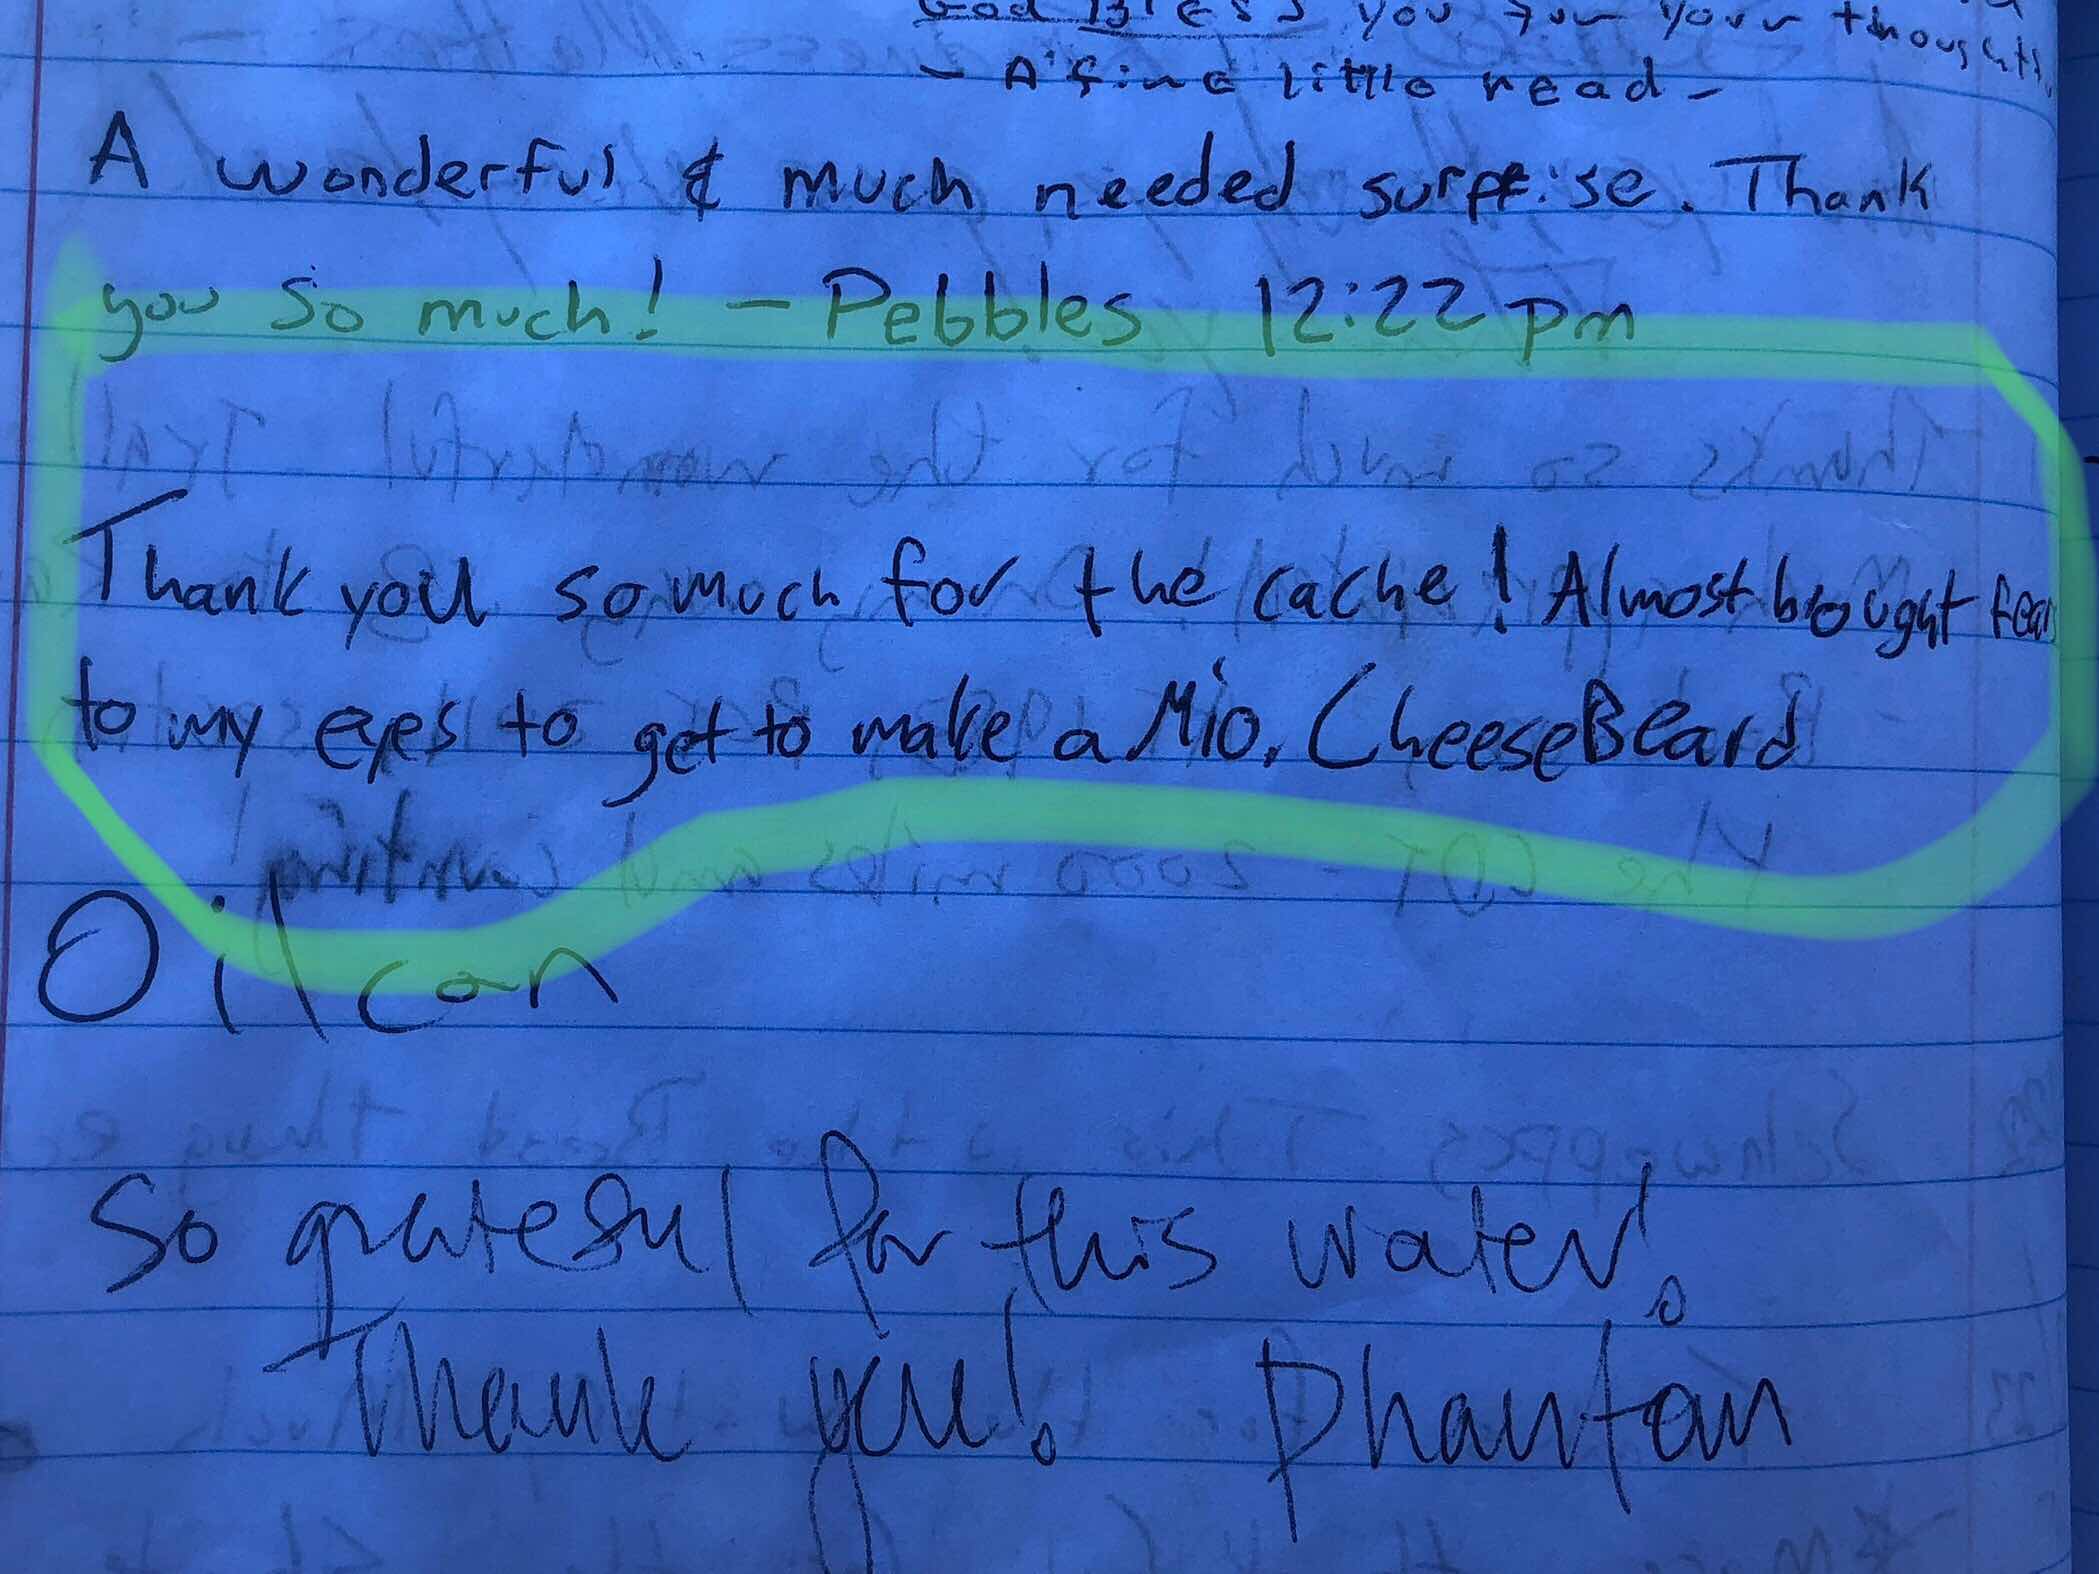 God Bless you for your thoughts
- A fine little read -
A wonderful & much needed surprise. Thank
you so much! - Pebbles 12:22 pm
Thank you so much for the cache! Almost brought tear
to my eyes to get to make a Mio. CheeseBeard
Oil can
So grateful for this water!
Thank you! Phantom